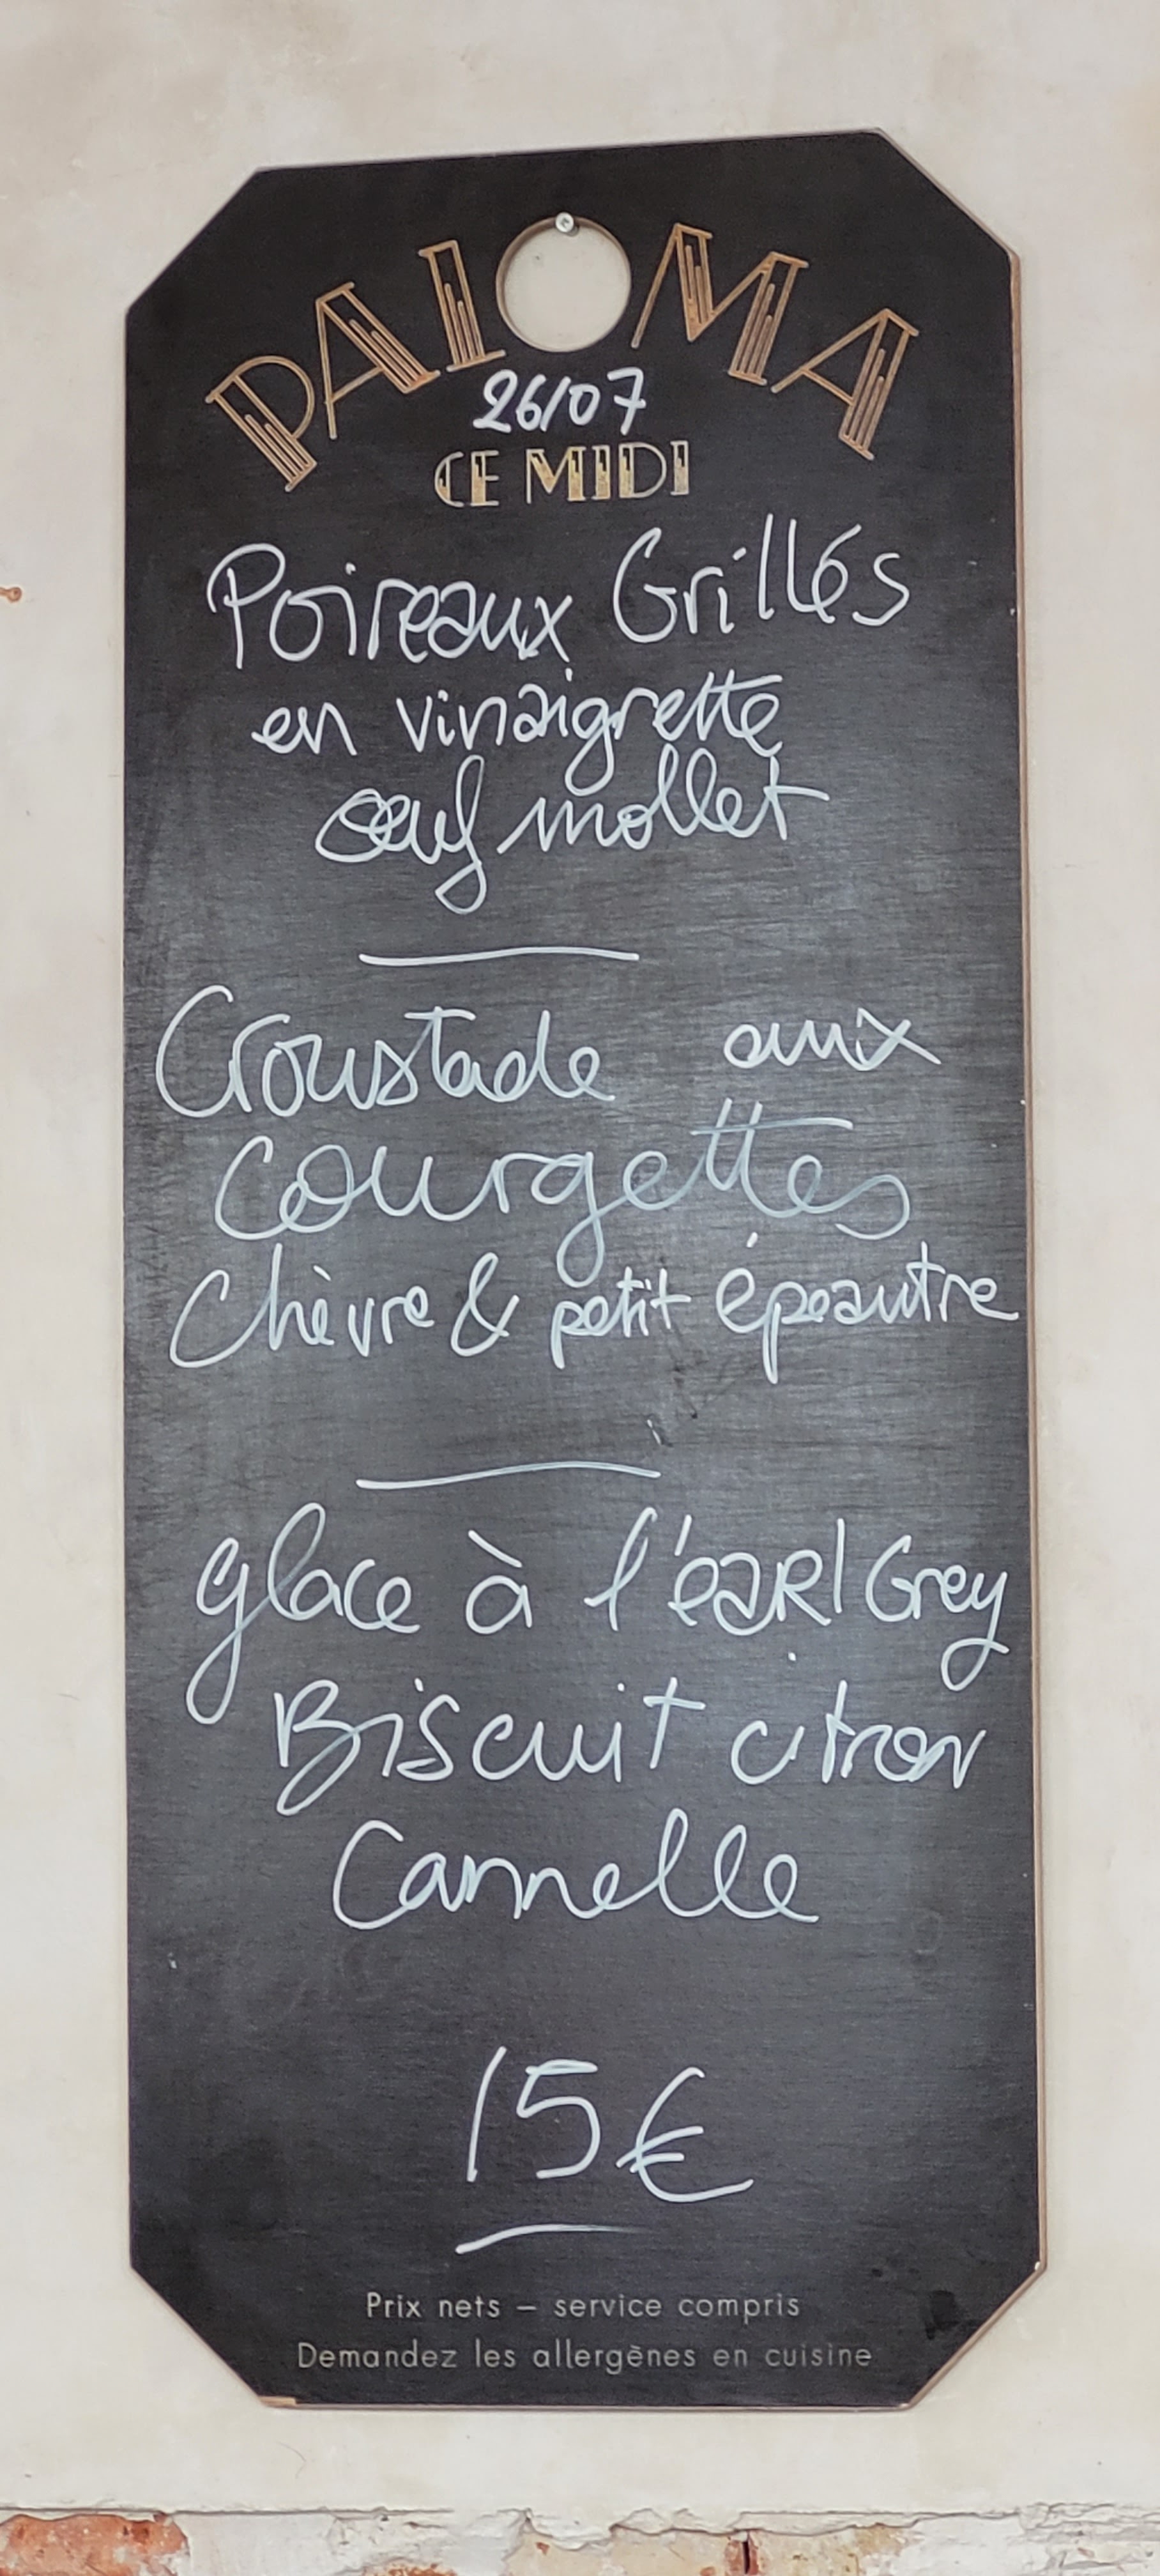 PALOMA
26/07
CE MIDI
Poireaux Grillés
en vinaigrette
œuf mollet
Croustade aux
Courgettes
Chèvre & petit épeautre
glace à l'éaRl Grey
Biscuit citron
Cannelle
15€
Prix nets – service compris
Demandez les allergènes en cuisine